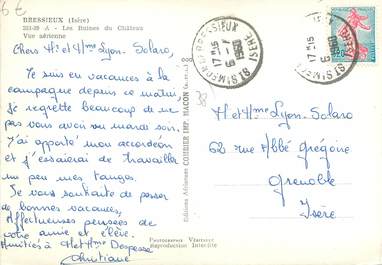 6€
BRESSIEUX (Isère)
351-99 A - Les Ruines du Château
Vue aérienne
Chers Mr et Mme Lyon-Solaro,
Je suis en vacances à la
campagne depuis ce matin,
je regrette beaucoup de ne
pas vous avoir vu mardi soir.
J'ai apporté mon accordéon
et j'essaierai de travailler
un peu mes tangos.
Je vous souhaite de passer
de bonnes vacances,
Affectueuses pensées de
votre amie et élève.
Amitiés à Mr et Mme Despesse
Christiane
Editions Aériennes COMBIER IMP. MACON
38
17H15
6
1960
ISERE
0,20
Mr et Mme Lyon-Solaro
62 rue Abbé Grégoire
Grenoble
Isère
Photographie Véritable
Reproduction Interdite